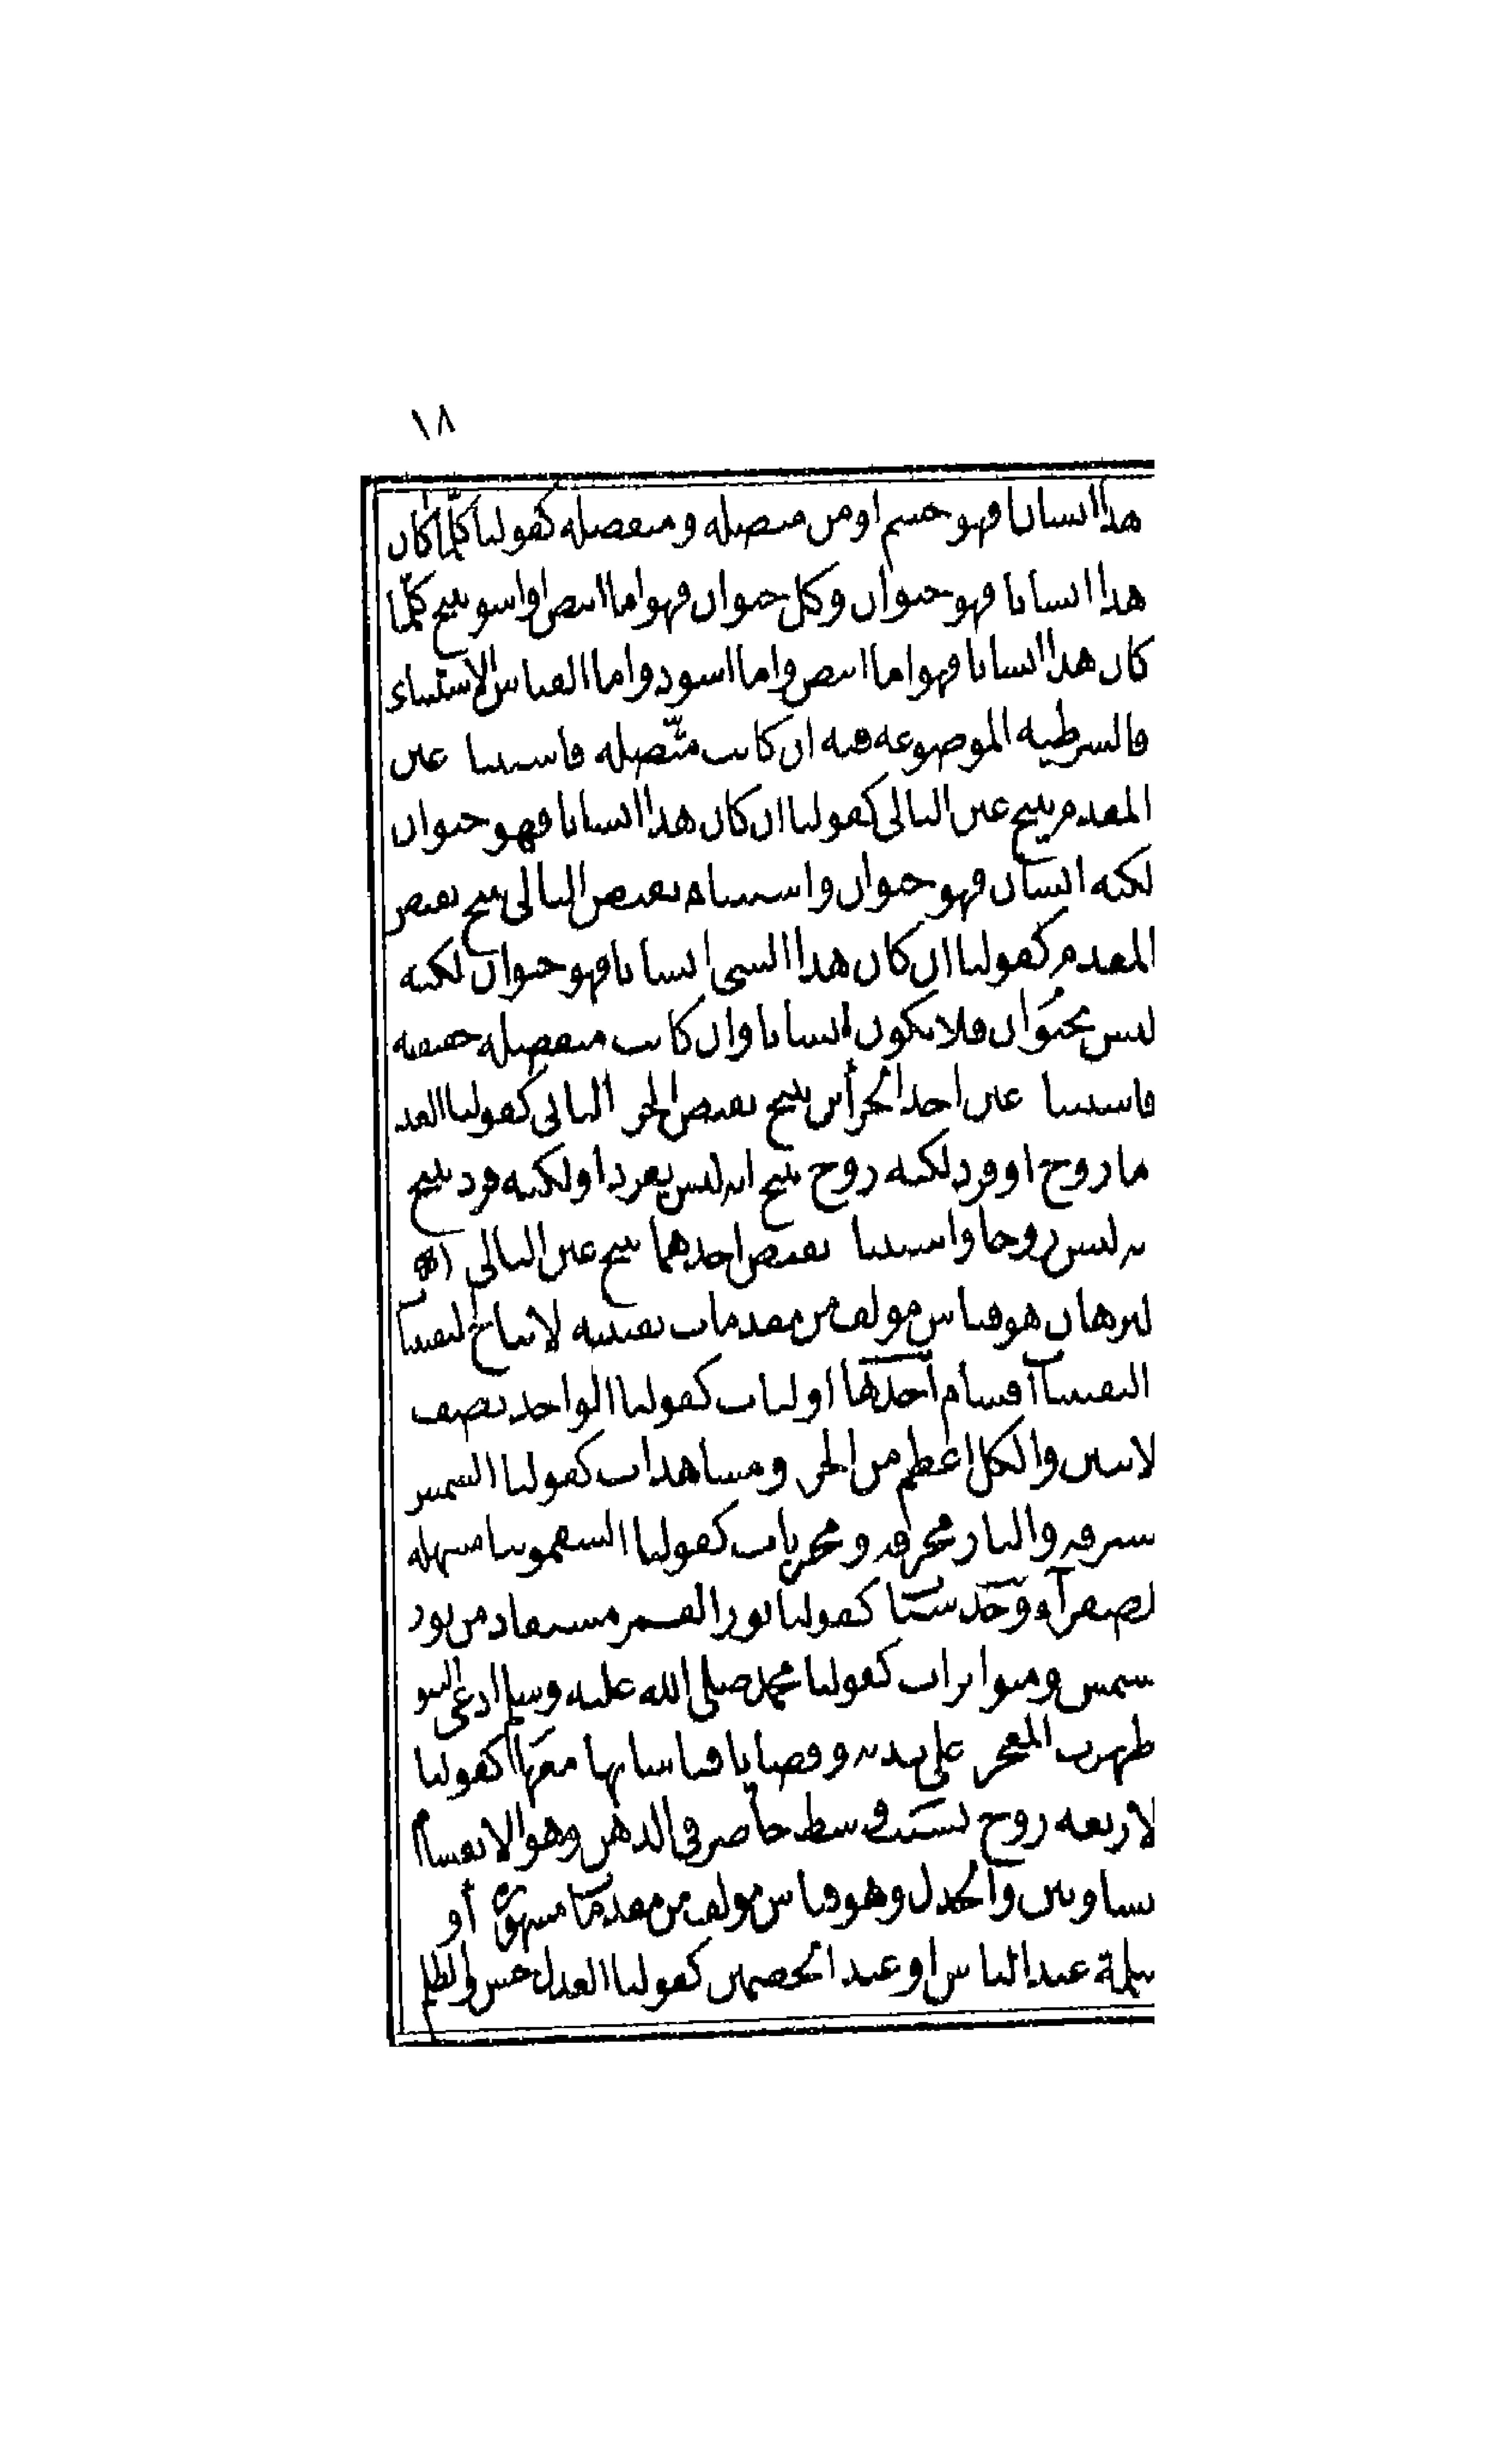 ١٨
هذا انسانا فهو جسم او من متصله و منفصله كقولنا كلّما كان
هذا انسانا فهو حيوان وكل حيوان فهو اما ابيض او اسو ينتج كلّما
كان هذا انسانا فهو اما ابيض واما اسود واما القياس الاستثناء
فالشرطيه الموضوعه فيه ان كانت متّصله فاستثنا عين
المقدم ينتج عين التالى كقولنا ان كان هذا انسانا فهو حيوان
لكنه انسان فهو حيوان واستثناء نقيض التالى ينتج نقيض
المقدم كقولنا ان كان هذا الشى انسانا فهو حيوان لكنه
ليس بحيَوان فلا يكون انسانا وان كانت منفصله حقيقيه
فاستثنا عين احد الجزأين ينتج نقيض الجز الثانى كقولنا العد
ما زوج او فرد لكنه زوج ينتج انه ليس بفرد او لكنه فرد ينتج
نه ليس زوجا واستثنا نقيض احدهما ينتج عين التالى
لبرهان هو قياس مولف من مقدمات يقينيه لانتاج ليقينيا
اليقينيا اقسام احدها اوليات كقولنا الواحد نصف
لاثنين والكل اعظم من الجز ومشاهدات كقولنا الشمس
شرقه والنار محرقه ومجربات كقولنا السقمونيا مسهله
لصفرآء وحدسيا كقولنا نور القمر مستفاد من نور
شمس ومتواترات كقولنا محمد صلى الله عليه وسلم ادعى النبو
ظهرت المعجز على يديه وقضايا قياساتها معَها كقولنا
لاربعه زوج بسبَب فى سط حاضر فى الذهن وهو الانقسام
تساويين والجدل وهو قياس مولف من مقدمات مشهورة أو
سلمة عند الناس او عند الخصمين كقولنا العدل حسن والظلم